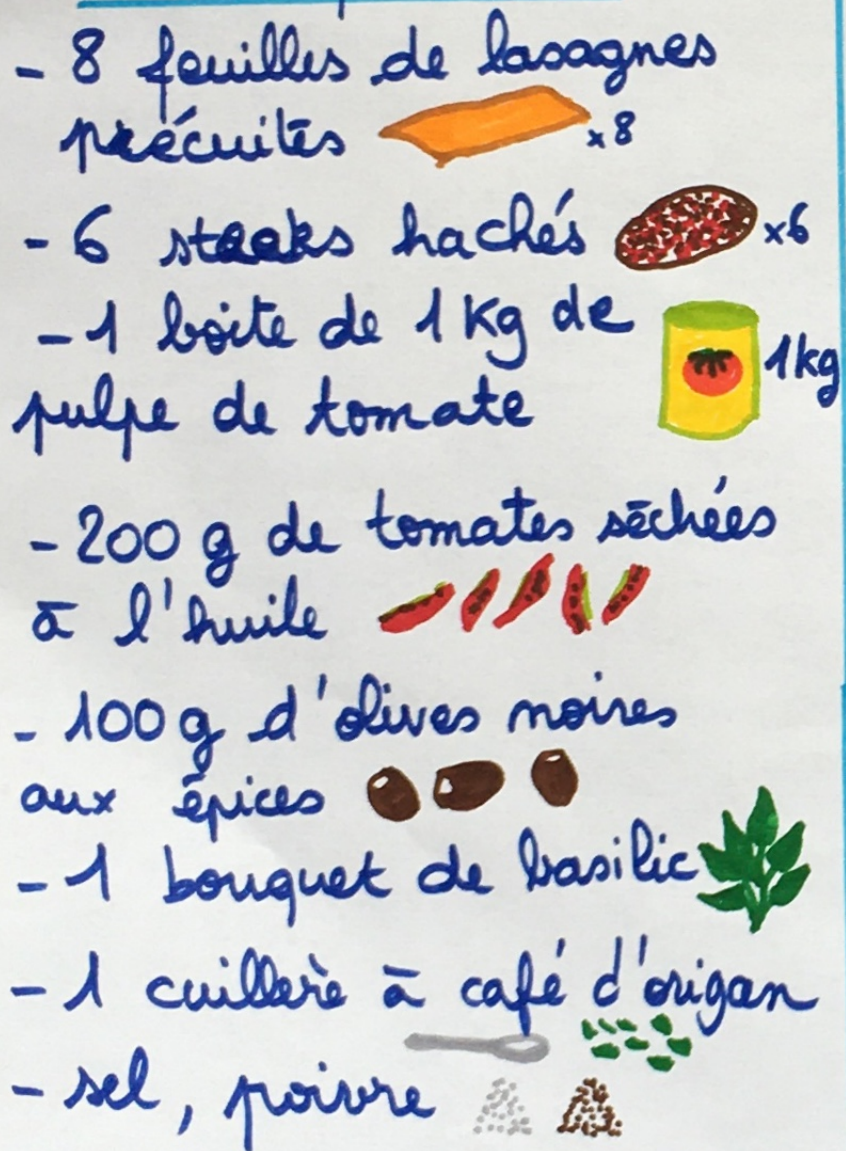 - 8 feuilles de lasagnes
précuites x8
- 6 steaks hachés x6
- 1 boite de 1 kg de
pulpe de tomate 1kg
- 200 g de tomates séchées
à l'huile
- 100 g d'olives noires
aux épices
- 1 bouquet de basilic
- 1 cuillère à café d'origan
- sel, poivre